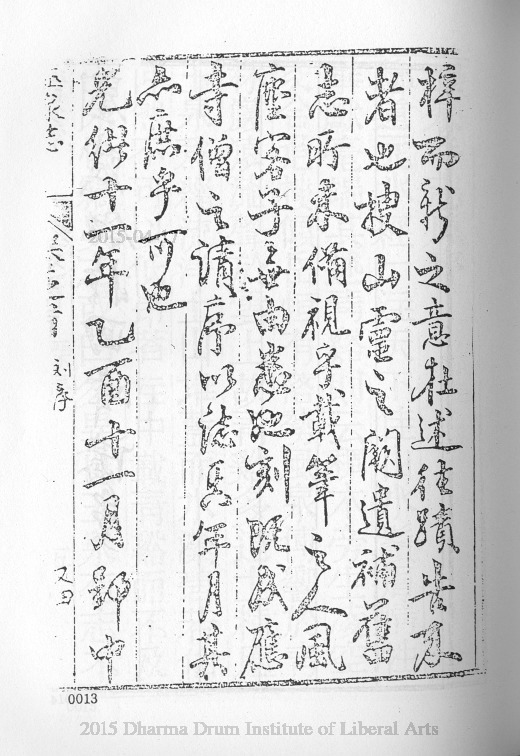 梓而新之意在述往蹟告來
者也搜山靈之闕遺補舊
志所未備視乎載筆之人風
塵客子無由養也刻既成應
寺僧之請序以誌其年月其
亦庶乎可也
光緒十一年乙酉十一月
刘序
0013
2015 Dharma Drum Institute of Liberal Arts